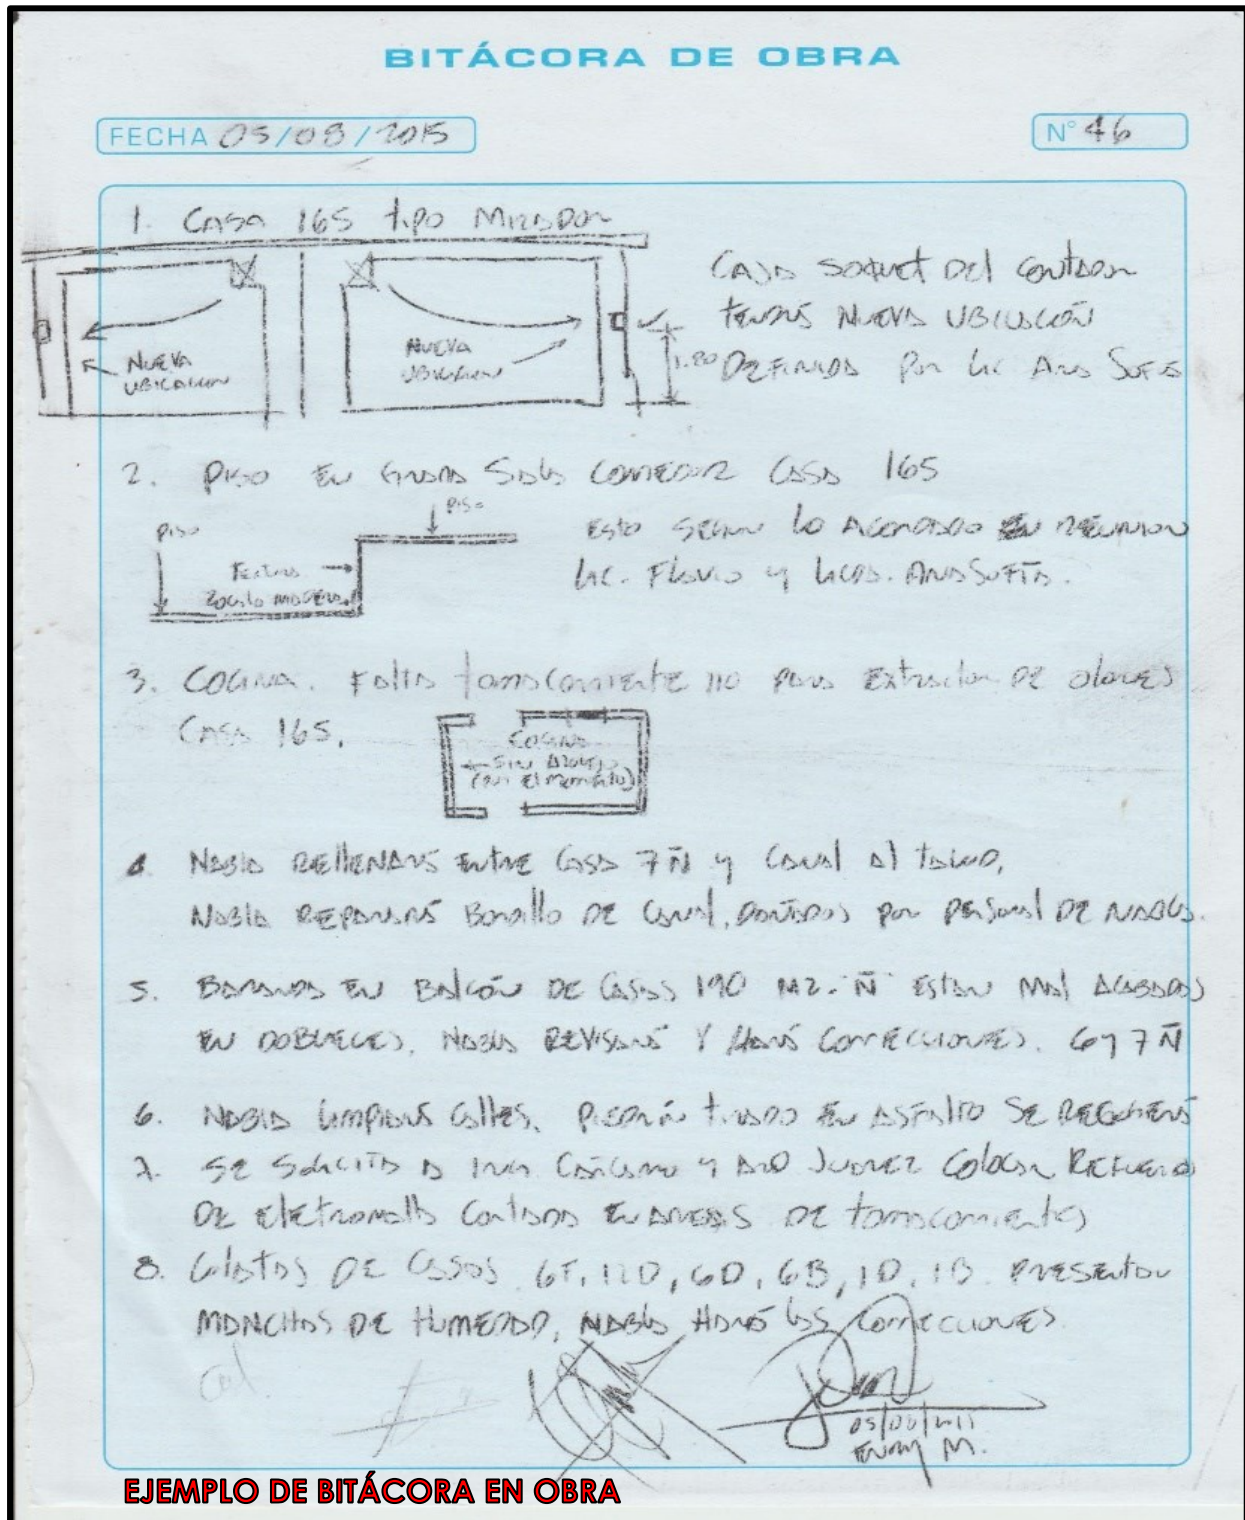 BITÁCORA DE OBRA
FECHA 05/08/2015
N° 46
1. CASA 165 tipo MIRADOR
NUEVA
UBICACION
NUEVA
UBICACION
1.80
CAJA SOQUET DEL CONTADOR
TENDRÁ NUEVA UBICACIÓN
DEFINIDA POR LIC ANA SOFIA
2. PISO EN GRADA SALA COMEDOR CASA 165
PISO
PISO
ZOCALO MADERA
ESTO SEGUN LO ACORDADO EN REUNION
LIC. FLAVIO Y LICDA. ANA SOFIA.
3. COCINA. FALTA TOMACORRIENTE 110 PARA EXTRACTOR DE OLORES
CASA 165.
COCINA
SIN AZULEJO
(POR EL MOMENTO)
4. NABLA RELLENARÁ ENTRE CASA 7Ñ Y CANAL AL TALUD,
NABLA REPARARÁ BORDILLO DE CANAL, DAÑADOS POR PERSONAL DE NABLA.
5. BARANDA EN BALCÓN DE CASAS 190 M2. Ñ ESTAN MAL ACABADAS
EN DOBLECES, NABLA REVISARÁ Y HARÁ CORRECCIONES. 6 Y 7 Ñ
6. NABLA LIMPIARÁ CALLES, PIEDRÍN TIRADO EN ASFALTO SE RECOGERÁ
7. SE SOLICITA A ING. Y ARQ JUAREZ COLOCAR REFUERZO
DE ELECTROMALLA CORTADA EN AREAS DE TOMACORRIENTES
8. DE CASAS 6F, 12D, 6D, 6B, 1D, 1B. PRESENTAN
MANCHAS DE HUMEDAD, NABLA HARÁ LAS CORRECCIONES.
M.
EJEMPLO DE BITÁCORA EN OBRA